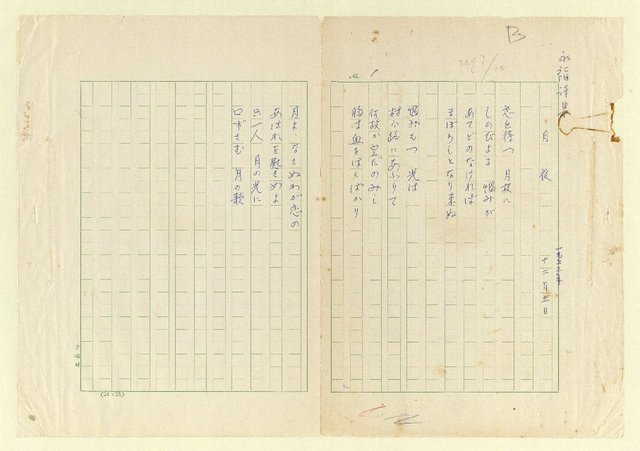 B
No. 1
月夜
一九五三年
十二月五日
恋を待つ 月夜に
しのびよる 悩みが
あてどのなければ
まぼろしとなり来ぬ
悩みもつ 光は
村の路にあふりて
何故か空だのみし
胸は血をはくばかり
月よ、なさぬわが恋の
あはれを慰さめよ
只一人 月の光に
口ずさむ 月の歌
(24×25)